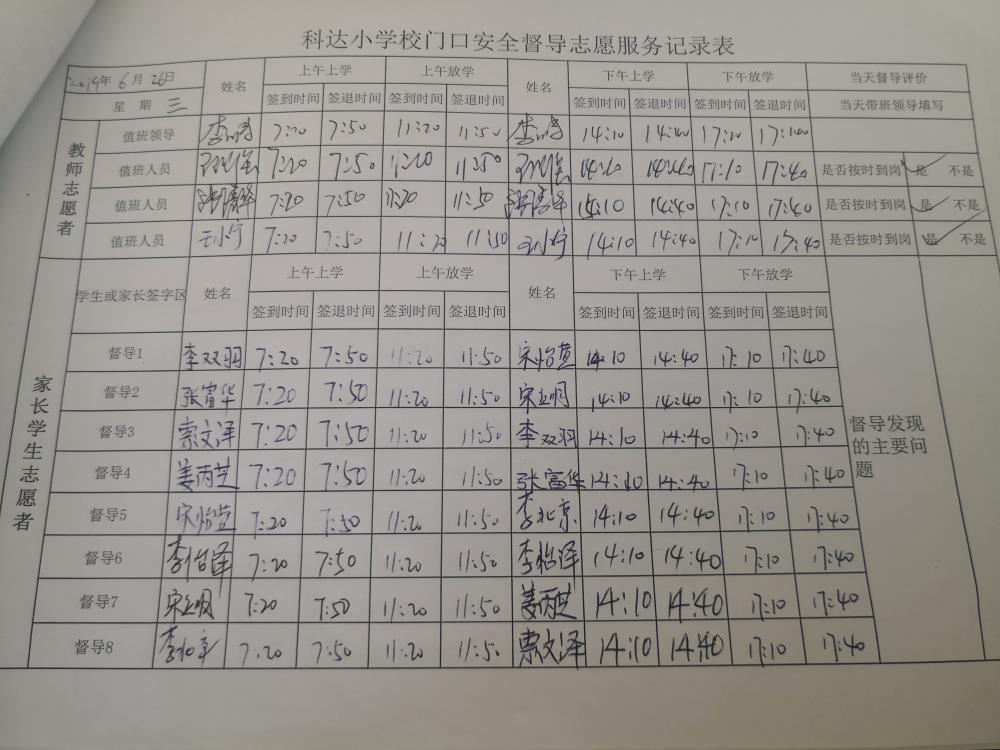 科达小学校门口安全督导志愿服务记录表
2019年 6 月 26日 姓名 上午上学 上午放学 姓名 下午上学 下午放学 当天督导评价
星 期 三 签到时间 签退时间 签到时间 签退时间 签到时间 签退时间 签到时间 签退时间 当天带班领导填写
教师志愿者
值班领导 7:20 7:50 11:20 11:50 14:10 14:40 17:10 17:40
值班人员 7:20 7:50 11:20 11:50 14:10 14:40 17:10 17:40 是否按时到岗 是 不是
值班人员 7:20 7:50 11:20 11:50 14:10 14:40 17:10 17:40 是否按时到岗 是 不是
值班人员 王小宁 7:20 7:50 11:20 11:50 王小宁 14:10 14:40 17:10 17:40 是否按时到岗 是 不是
家长学生志愿者
学生或家长签字区 姓名 上午上学 上午放学 姓名 下午上学 下午放学
签到时间 签退时间 签到时间 签退时间 签到时间 签退时间 签到时间 签退时间
督导1 李双羽 7:20 7:50 11:20 11:50 宋怡萱 14:10 14:40 17:10 17:40
督导2 张富华 7:20 7:50 11:20 11:50 14:10 14:40 17:10 17:40
督导3 索文泽 7:20 7:50 11:20 11:50 李双羽 14:10 14:40 17:10 17:40
督导4 姜丙芝 7:20 7:50 11:20 11:50 张富华 14:10 14:40 17:10 17:40
督导5 宋怡萱 7:20 7:50 11:20 11:50 李北京 14:10 14:40 17:10 17:40
督导6 李怡泽 7:20 7:50 11:20 11:50 李怡泽 14:10 14:40 17:10 17:40
督导7 7:20 7:50 11:20 11:50 姜丙芝 14:10 14:40 17:10 17:40
督导8 李北京 7:20 7:50 11:20 11:50 索文泽 14:10 14:40 17:10 17:40
督导发现
的主要问
题